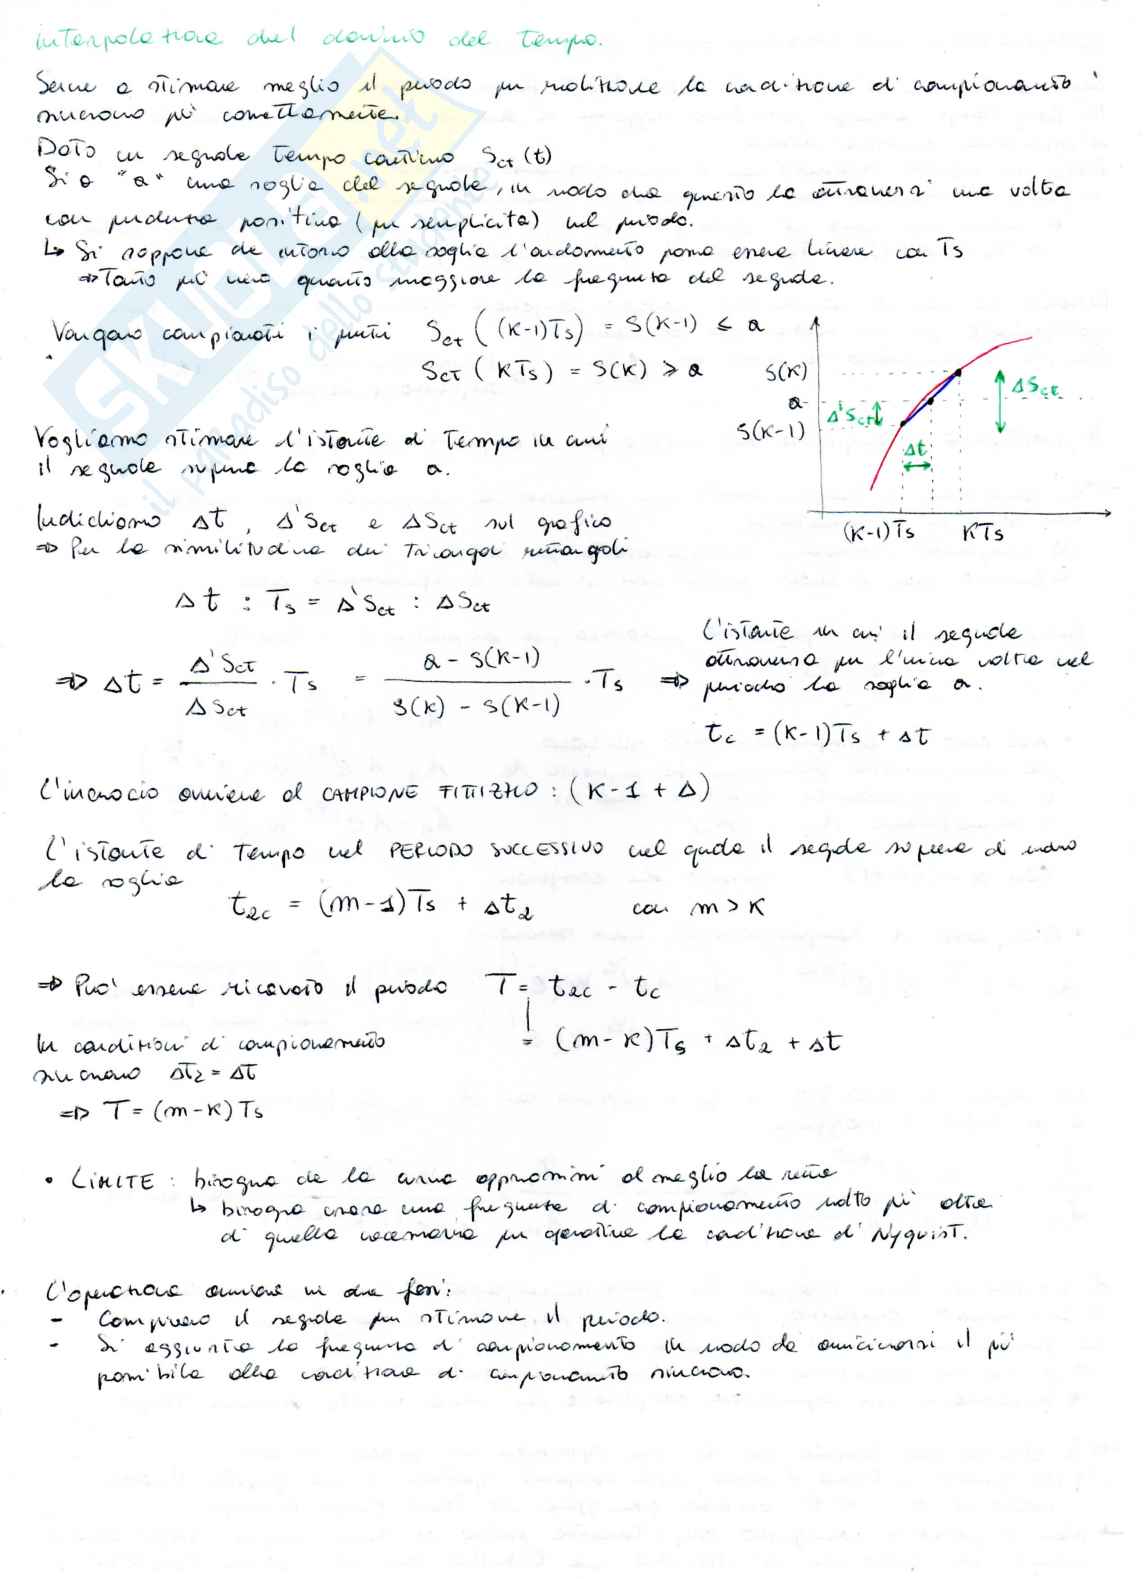 Interpolazione del dominio del tempo.
Serve a stimare meglio il periodo per realizzare la condizione di campionamento
sincrono più correttamente.
Dato un segnale tempo continuo Sct(t)
Sia "a" una soglia del segnale, in modo che questo la attraversi una volta
con pendenza positiva (per semplicità) nel periodo.
↳ Si suppone che intorno alla soglia l'andamento possa essere lineare con Ts
⇒ Tanto più vero quanto maggiore la frequenza del segnale.
Vengono campionati i punti Sct((K-1)Ts) = S(K-1) ≤ a
Sct(KTs) = S(K) ≥ a
S(K)
a
S(K-1)
Δ'Sct
ΔSct
Δt
(K-1)Ts KTs
Vogliamo stimare l'istante di tempo in cui
il segnale supera la soglia a.
Indichiamo Δt, Δ'Sct e ΔSct sul grafico
⇒ Per la similitudine dei triangoli rettangoli
Δt : Ts = Δ'Sct : ΔSct
⇒ Δt = Δ'Sct / ΔSct · Ts = a - S(K-1) / S(K) - S(K-1) · Ts ⇒
L'istante in cui il segnale
attraversa per l'unica volta nel
periodo la soglia a.
tc = (K-1)Ts + Δt
L'incrocio avviene al CAMPIONE FITTIZIO: (K-1 + Δ)
L'istante di tempo nel PERIODO SUCCESSIVO nel quale il segnale supera di nuovo
la soglia
t2c = (m-1)Ts + Δt2 con m > K
⇒ Può essere ricavato il periodo T = t2c - tc
= (m-K)Ts + Δt2 + Δt
In condizioni di campionamento
sincrono Δt2 = Δt
⇒ T = (m-K)Ts
• LIMITE: bisogna che la curva approssimi al meglio la retta
↳ bisogna usare una frequenza di campionamento molto più alta
di quella necessaria per garantire la condizione di Nyquist.
L'operazione avviene in due fasi:
- Campiono il segnale per stimare il periodo.
- Si aggiusta la frequenza di campionamento in modo da avvicinarsi il più
possibile alla condizione di campionamento sincrono.
SKUOLA.net
il paradiso dello studente